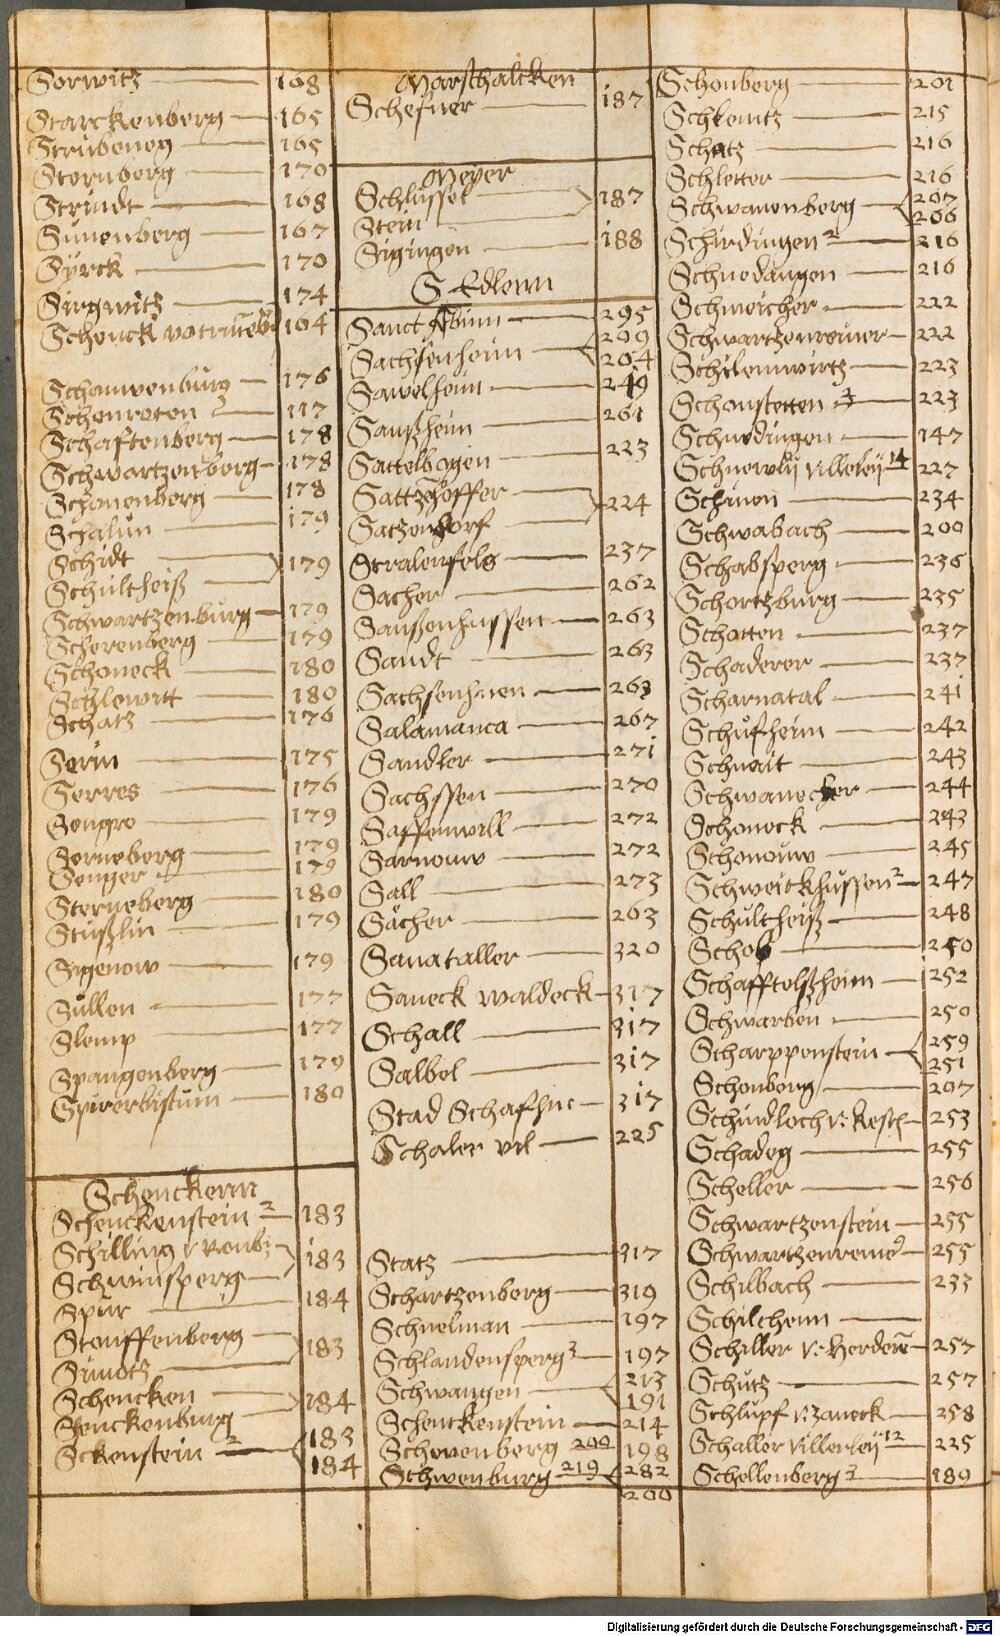 Sorwitz 168
Starckenberg 165
Strubeneg 165
Sternberg 170
Strindt 168
Sunenberg 167
Sÿrck 170
Sirgwitz 174
Schenck 164
Schauwenburg 176
Schenroten 2 117
Schaftenberg 178
Schwartzenberg 178
Schonenberg 178
Schalun 179
Schidt
Schultheiß 179
Schwartzenburg 179
Scherenberg 179
Schoneck 180
Schlewitt 180
Schatz 176
Serin 175
Serres 176
Sengro 179
Serneberg 179
Senger 179
Sterneberg 180
Stußlin 179
Sigenow 179
Sullen 177
Slemp 177
Spangenberg 179
Spirerbistum 180
Schenckenn
Schenckenstein 2 183
Schilling v
Schwinsperg 183
Spur 184
Stauffenberg
Simotz 183
Schencken
Senckenburg 184
Sckenstein 2 183
184
Marschalcken
Schefner 187
Meyer
Schlüssel
Stein 187
Sigingen 188
S Edlenn
Sanct Albinn 295
Sachsenheim 299
204
Sawelheim 249
Saußheim 261
Sattelbogen 223
Sattzehoffer
Satzendorf 224
Stralenfels 237
Sacher 262
Saußenhussen 263
Sandt 263
Sachsenhuen 263
Salamanca 267
Sandler 271
Sachssen 270
Saffenwell 272
Sarnouw 272
Sall 273
Sächer 263
Sanataller 320
Saneck Waldeck 317
Schall 317
Salbel 317
Stad Schafhuc 317
Schaler vil 225
Statz 317
Schartzenberg 319
Schnelman 197
Schlandensperg 3 197
Schwangen 213
191
Schenckenstein 214
Schowenberg 200 198
Schwenburg 219 282
200
Schonberg 201
Schkeuitz 215
Schatz 216
Schletter 216
Schwanenberg 207
206
Schirdingen 2 216
Schnedangen 216
Schweicher 222
Schwartzenreiner 222
Schilenwirtz 223
Schonstetten 3 223
Schnedingen 147
Schnewlÿ Villeleÿ 14 227
Schinen 234
Schwabach 200
Schabsperg 236
Schortzburg 235
Schotten 237
Schaderer 237
Scharnatal 241
Schufheim 242
Schnait 243
Schwanecker 244
Schoneck 243
Schonouw 245
Schweickhussen 2 247
Schultheiß 248
Schob 250
Schafftolßheim 252
Schwarben 250
Scharppenstein 259
251
Schonberg 207
Schindloch v: Kesch 253
Schadeg 255
Scheller 256
Schwartzenstein 255
Schwartzenreiner 255
Schilbach 233
Schilchenn
Schiller v: Herderē 257
Schutz 257
Schlupf v: Zaneck 258
Schaller Villerleÿ 12 225
Schellenberg 3 189
Digitalisierung gefördert durch die Deutsche Forschungsgemeinschaft - DFG